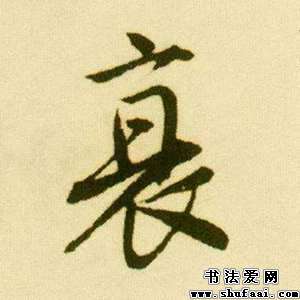 衰
书法爱网
www.shufaai.com